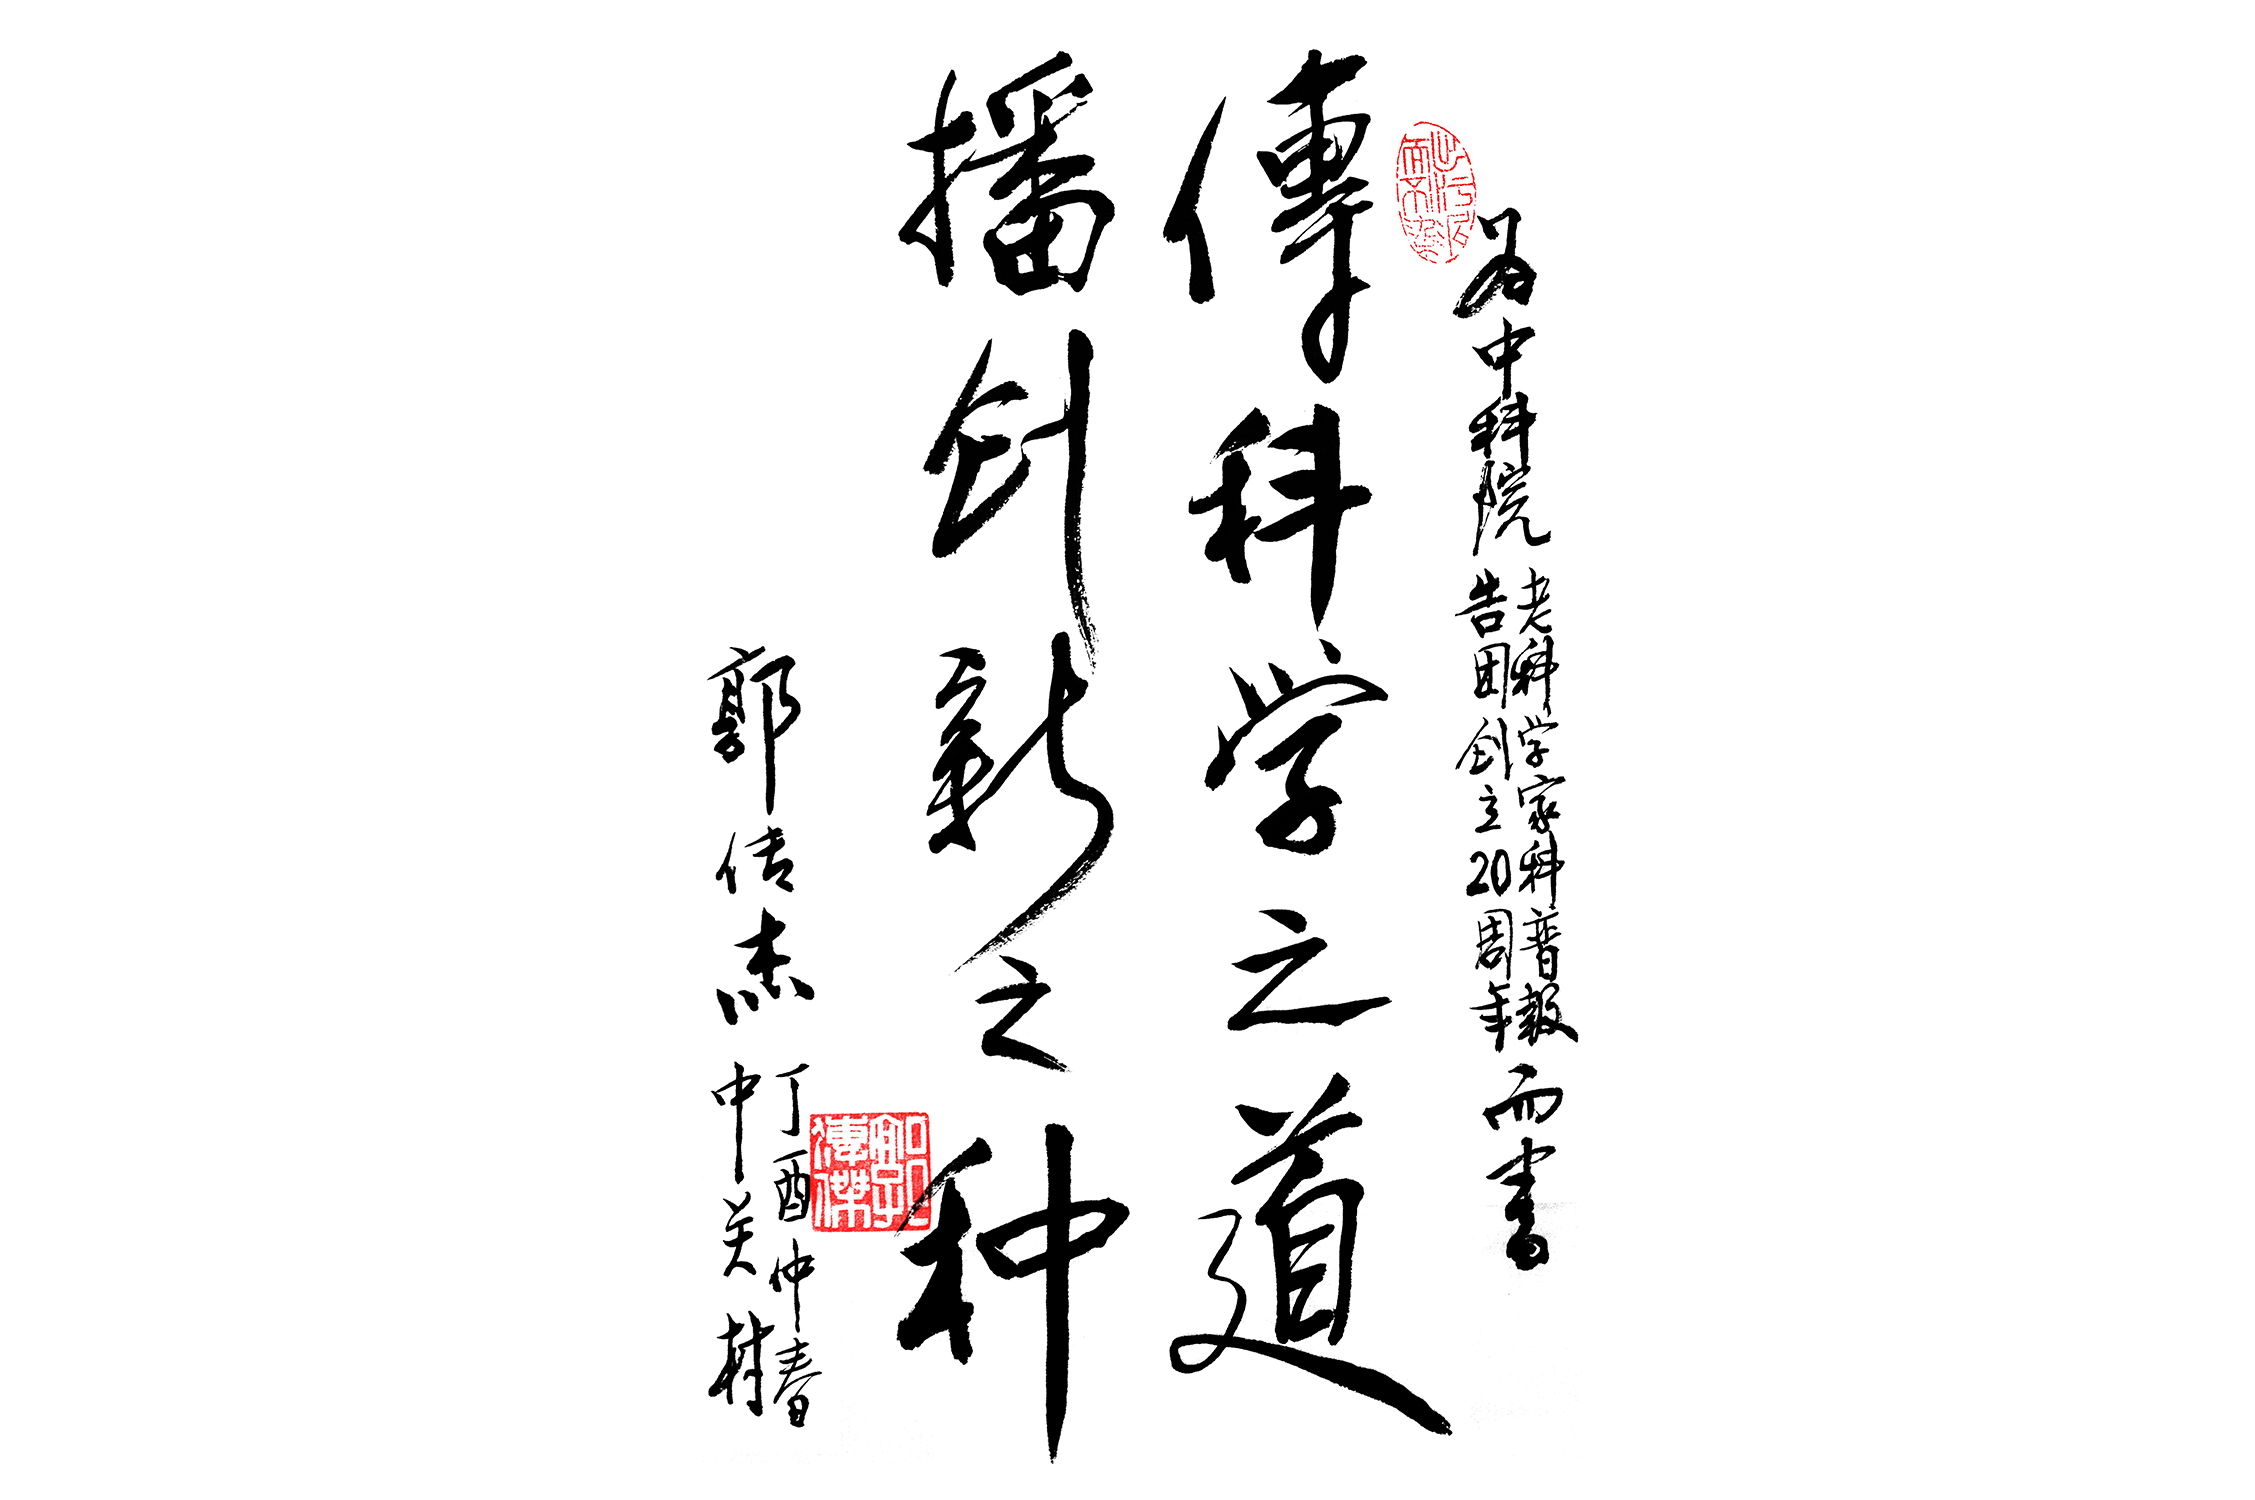 为中科院
老科学家科普報
告团创立20周年
而書
傳科学之道
播创新之种
郭传杰
丁酉仲春
中关村
郭氏傳傑